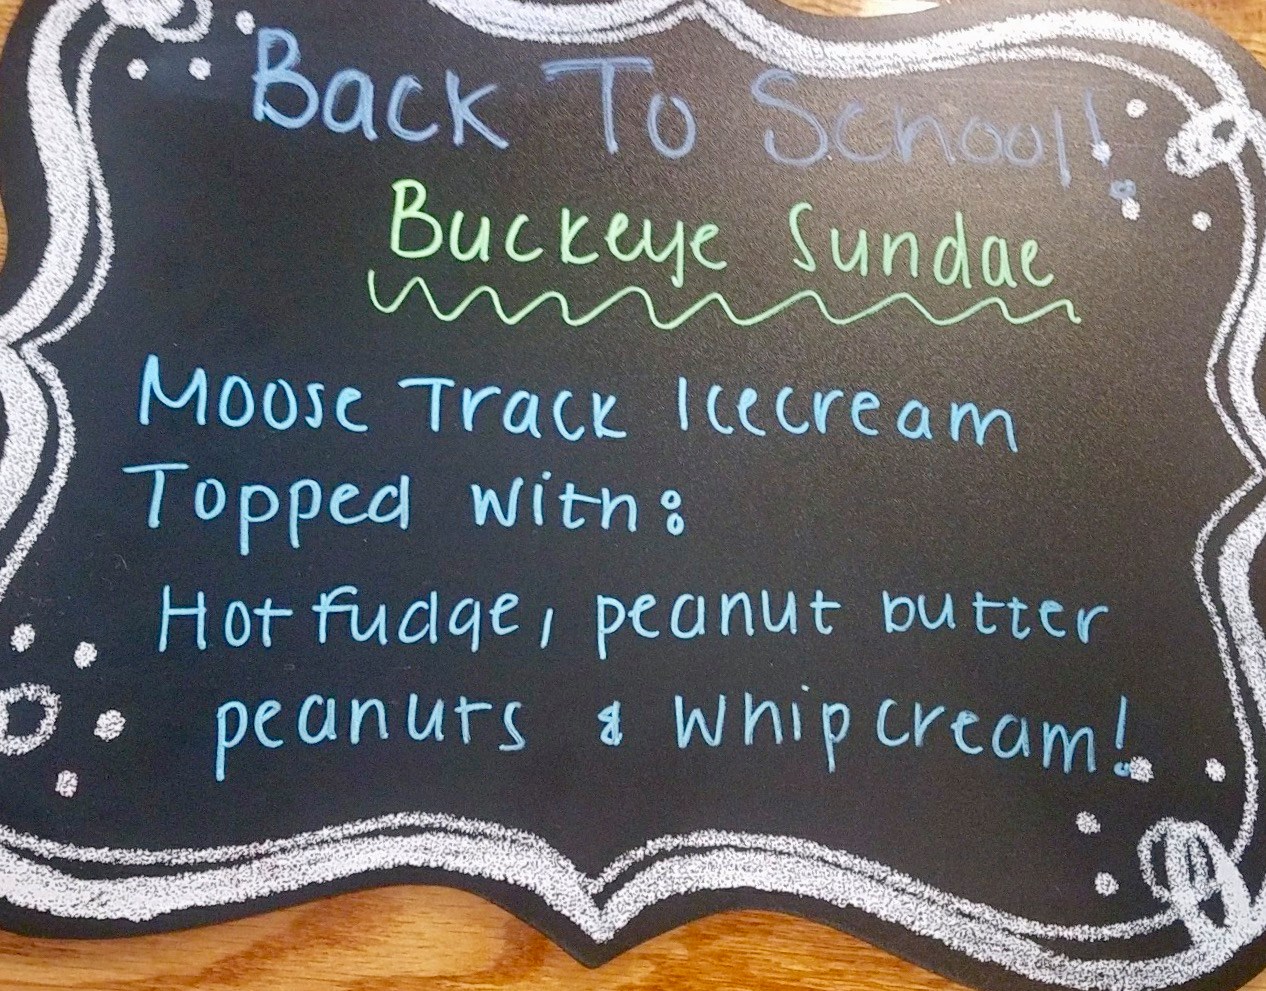 Back To School!
Buckeye Sundae
Moose Track Icecream
Topped with:
Hot fudge, peanut butter
peanuts & whip cream!